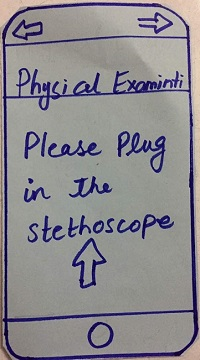 Physical Examinti
Please Plug
in the
stethoscope